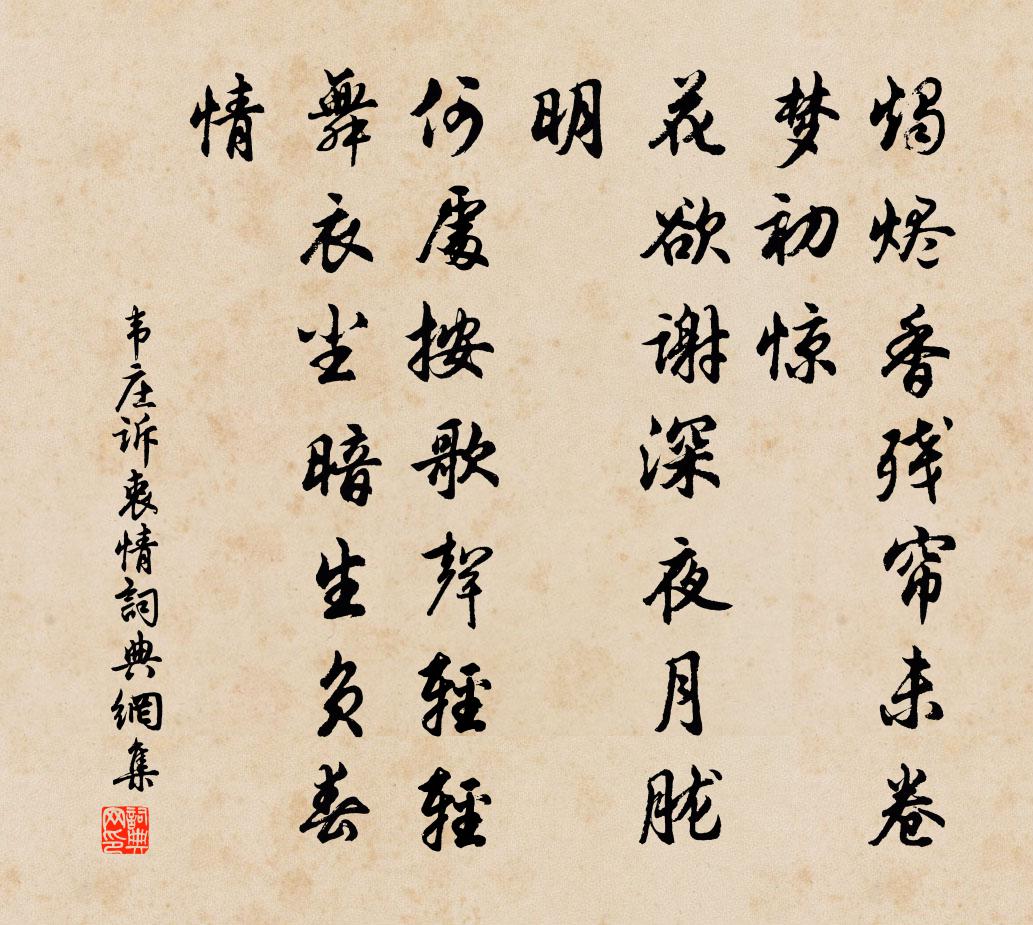 烛烬香残帘未卷
梦初惊
花欲谢深夜月胧
明
何處按歌聲輕輕
舞衣尘暗生负春
情
韦庄诉衷情詞典網集
詞典网印